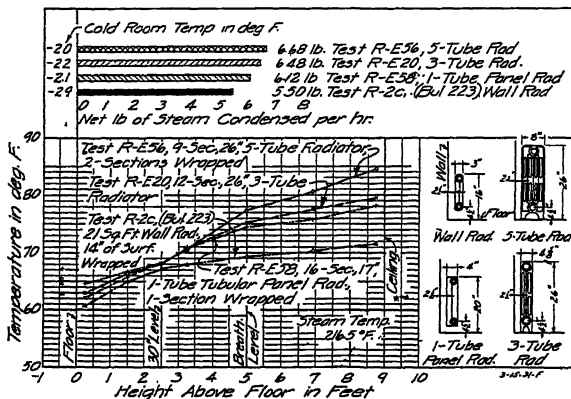 Cold Room Temp in deg F.
-20 6.68 lb. Test R-E56, 5-Tube Rad
-22 6.48 lb. Test R-E20, 3-Tube Rad.
-21 6.12 lb. Test R-E58; 1-Tube Panel Rad
-29 5.50 lb. Test R-2c, (Bul 223) Wall Rad
0 1 2 3 4 5 6 7 8
Net lb of Steam Condensed per hr.
Temperature in deg. F.
90
80
70
60
50
Test R-E56, 9-Sec, 26", 5-Tube Radiator
2-Sections Wrapped
Test R-E20, 12-Sec, 26", 3-Tube
Radiator
Test R-2c, (Bul 223)
21 Sq. Ft Wall Rad,
14" of Surf.
Wrapped
Test R-E58, 16-Sec, 17",
1-Tube Tubular Panel Rad.,
1-Section Wrapped
Steam Temp.
216.5 °F.
Floor
30" Level
Breath.
Level
Ceiling
-1 0 1 2 3 4 5 6 7 8 9 10
Height Above Floor in Feet
Wall
3"
16"
Floor
Wall Rad.
8"
26"
5-Tube Rad
4"
20"
1-Tube
Panel Rad.
26"
3-Tube
Rad